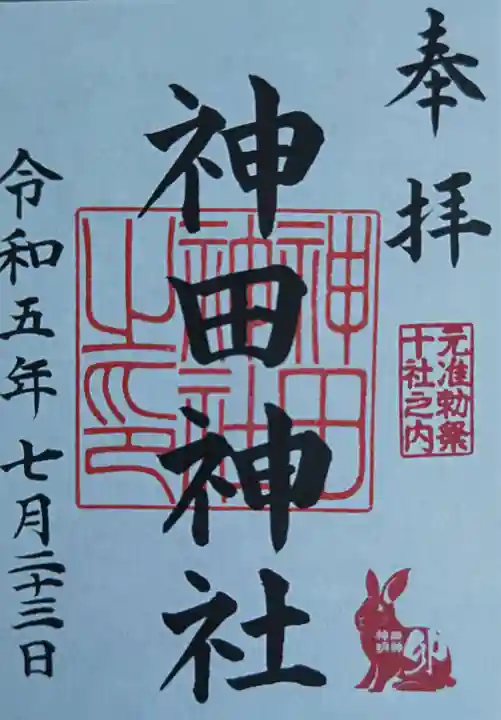 奉拝
元准勅祭
十社之内
神田神社
神田
神社
之印
卯
令和五年七月二十三日